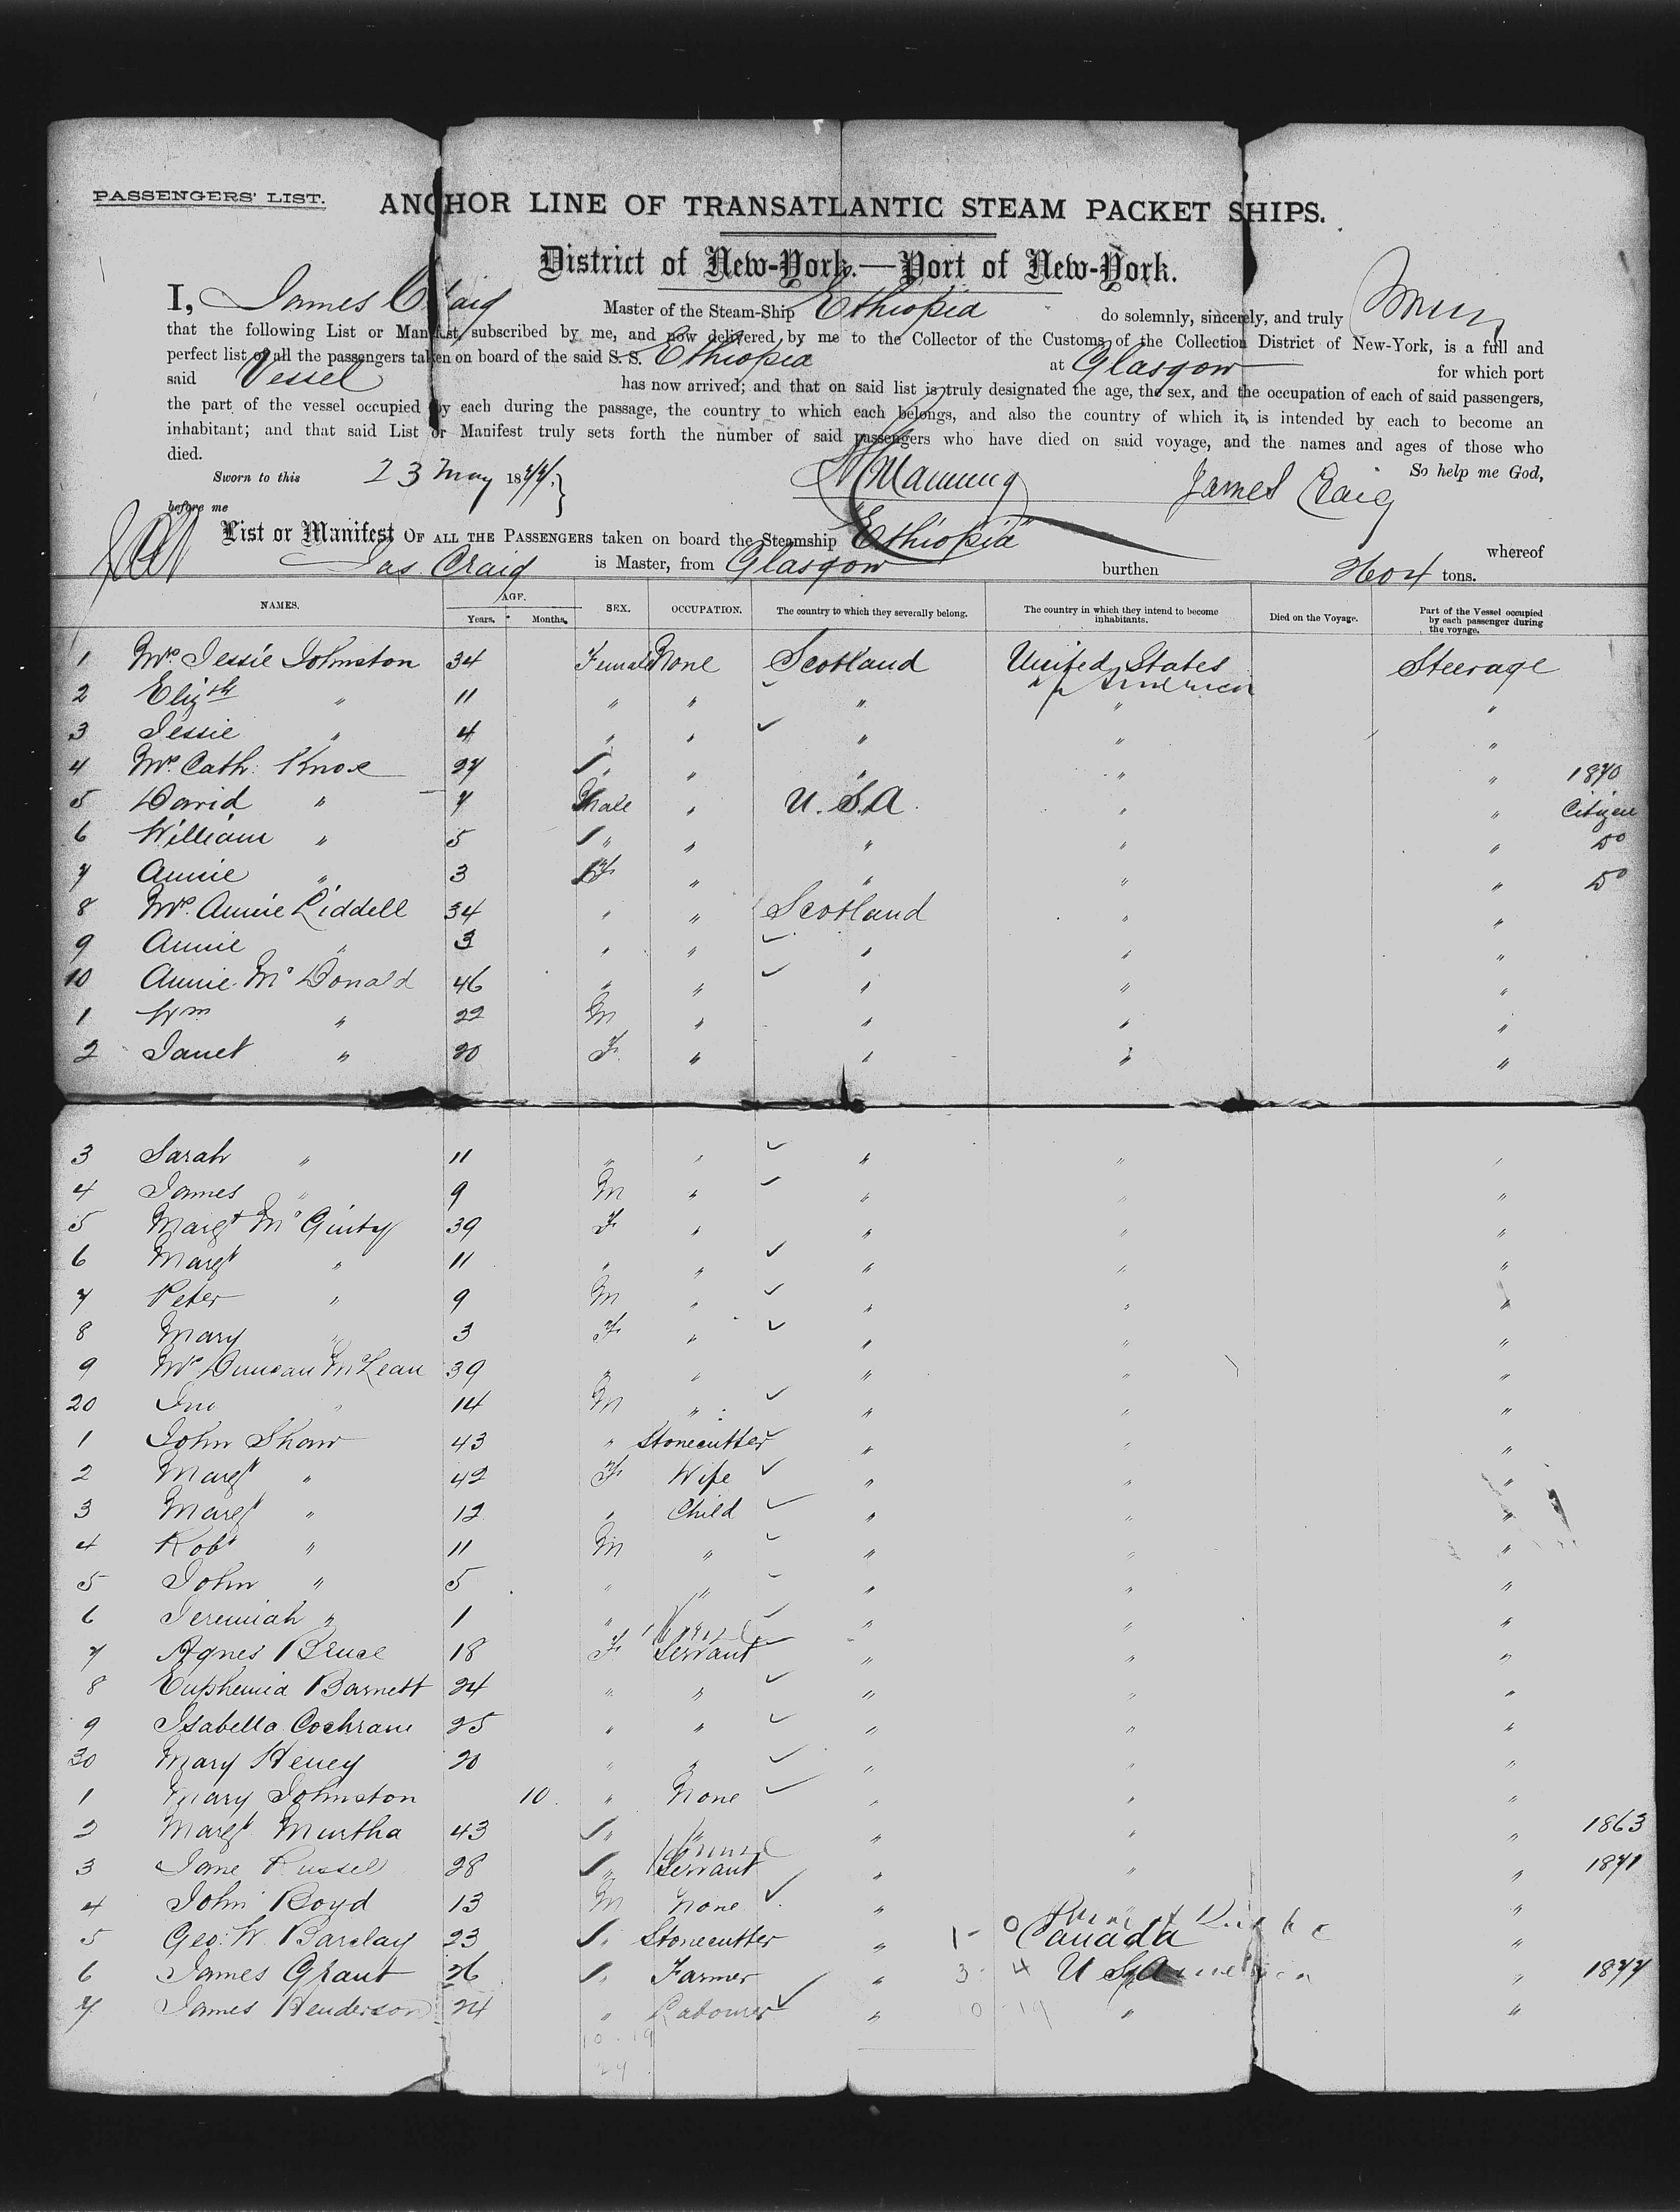 PASSENGERS' LIST.
ANCHOR LINE OF TRANSATLANTIC STEAM PACKET SHIPS.
District of New-York.—Port of New-York.
I, James Craig Master of the Steam-Ship Ethiopia do solemnly, sincerely, and truly
that the following List or Manifest, subscribed by me, and now delivered by me to the Collector of the Customs of the Collection District of New-York, is a full and
perfect list of all the passengers taken on board of the said S. S. Ethiopia at Glasgow for which port
said Vessel has now arrived; and that on said list is truly designated the age, the sex, and the occupation of each of said passengers,
the part of the vessel occupied by each during the passage, the country to which each belongs, and also the country of which it is intended by each to become an
inhabitant; and that said List or Manifest truly sets forth the number of said passengers who have died on said voyage, and the names and ages of those who
died. So help me God,
Sworn to this 23 May 1877. James Craig
before me
List or Manifest OF ALL THE PASSENGERS taken on board the Steamship "Ethiopia" whereof
Jas. Craig is Master, from Glasgow burthen 2604 tons.
NAMES. AGE. Years. Months. SEX. OCCUPATION. The country to which they severally belong. The country in which they intend to become inhabitants. Died on the Voyage. Part of the Vessel occupied by each passenger during the voyage.
1 Mrs. Jessie Johnston 34 Female None Scotland United States of America Steerage
2 Elizth " 11 " " " " "
3 Jessie " 4 " " " " "
4 Mrs. Cath: Knox 27 " " " " " 1870
5 David " 7 Male " U.S.A. " " Citizen
6 William " 5 " " " " " Do
7 Annie " 3 F " " " " Do
8 Mrs. Annie Liddell 34 " " Scotland " "
9 Annie " 3 " " " " "
10 Annie McDonald 46 " " " " "
1 Wm " 22 M " " " "
2 Janet " 20 F " " " "
3 Sarah " 11 " " " " "
4 James " 9 M " " " "
5 Margt McGinty 39 F " " " "
6 Margt " 11 " " " " "
7 Peter " 9 M " " " "
8 Mary " 3 F " " " "
9 Mrs Duncan McLean 39 " " " " "
20 Jno " 14 M " " " "
1 John Shaw 43 " Stonecutter " " "
2 Margt " 42 F Wife " " "
3 Margt " 12 " Child " " "
4 Robt " 11 M " " " "
5 John " 5 " " " " "
6 Jeremiah " 1 " " " " "
7 Agnes Bruce 18 F Servant " " "
8 Euphemia Barnett 24 " " " " "
9 Isabella Cochrane 25 " " " " "
30 Mary Heney 20 " " " " "
1 Mary Johnston 10 " None " " "
2 Margt Murtha 43 " " " " " 1863
3 Jane Russell 28 " Servant " " " 1871
4 John Boyd 13 M None " " "
5 Geo: W. Barclay 23 " Stonecutter " Canada "
6 James Grant 26 " Farmer " U S America " 1877
7 James Henderson 24 " Labourer " " "